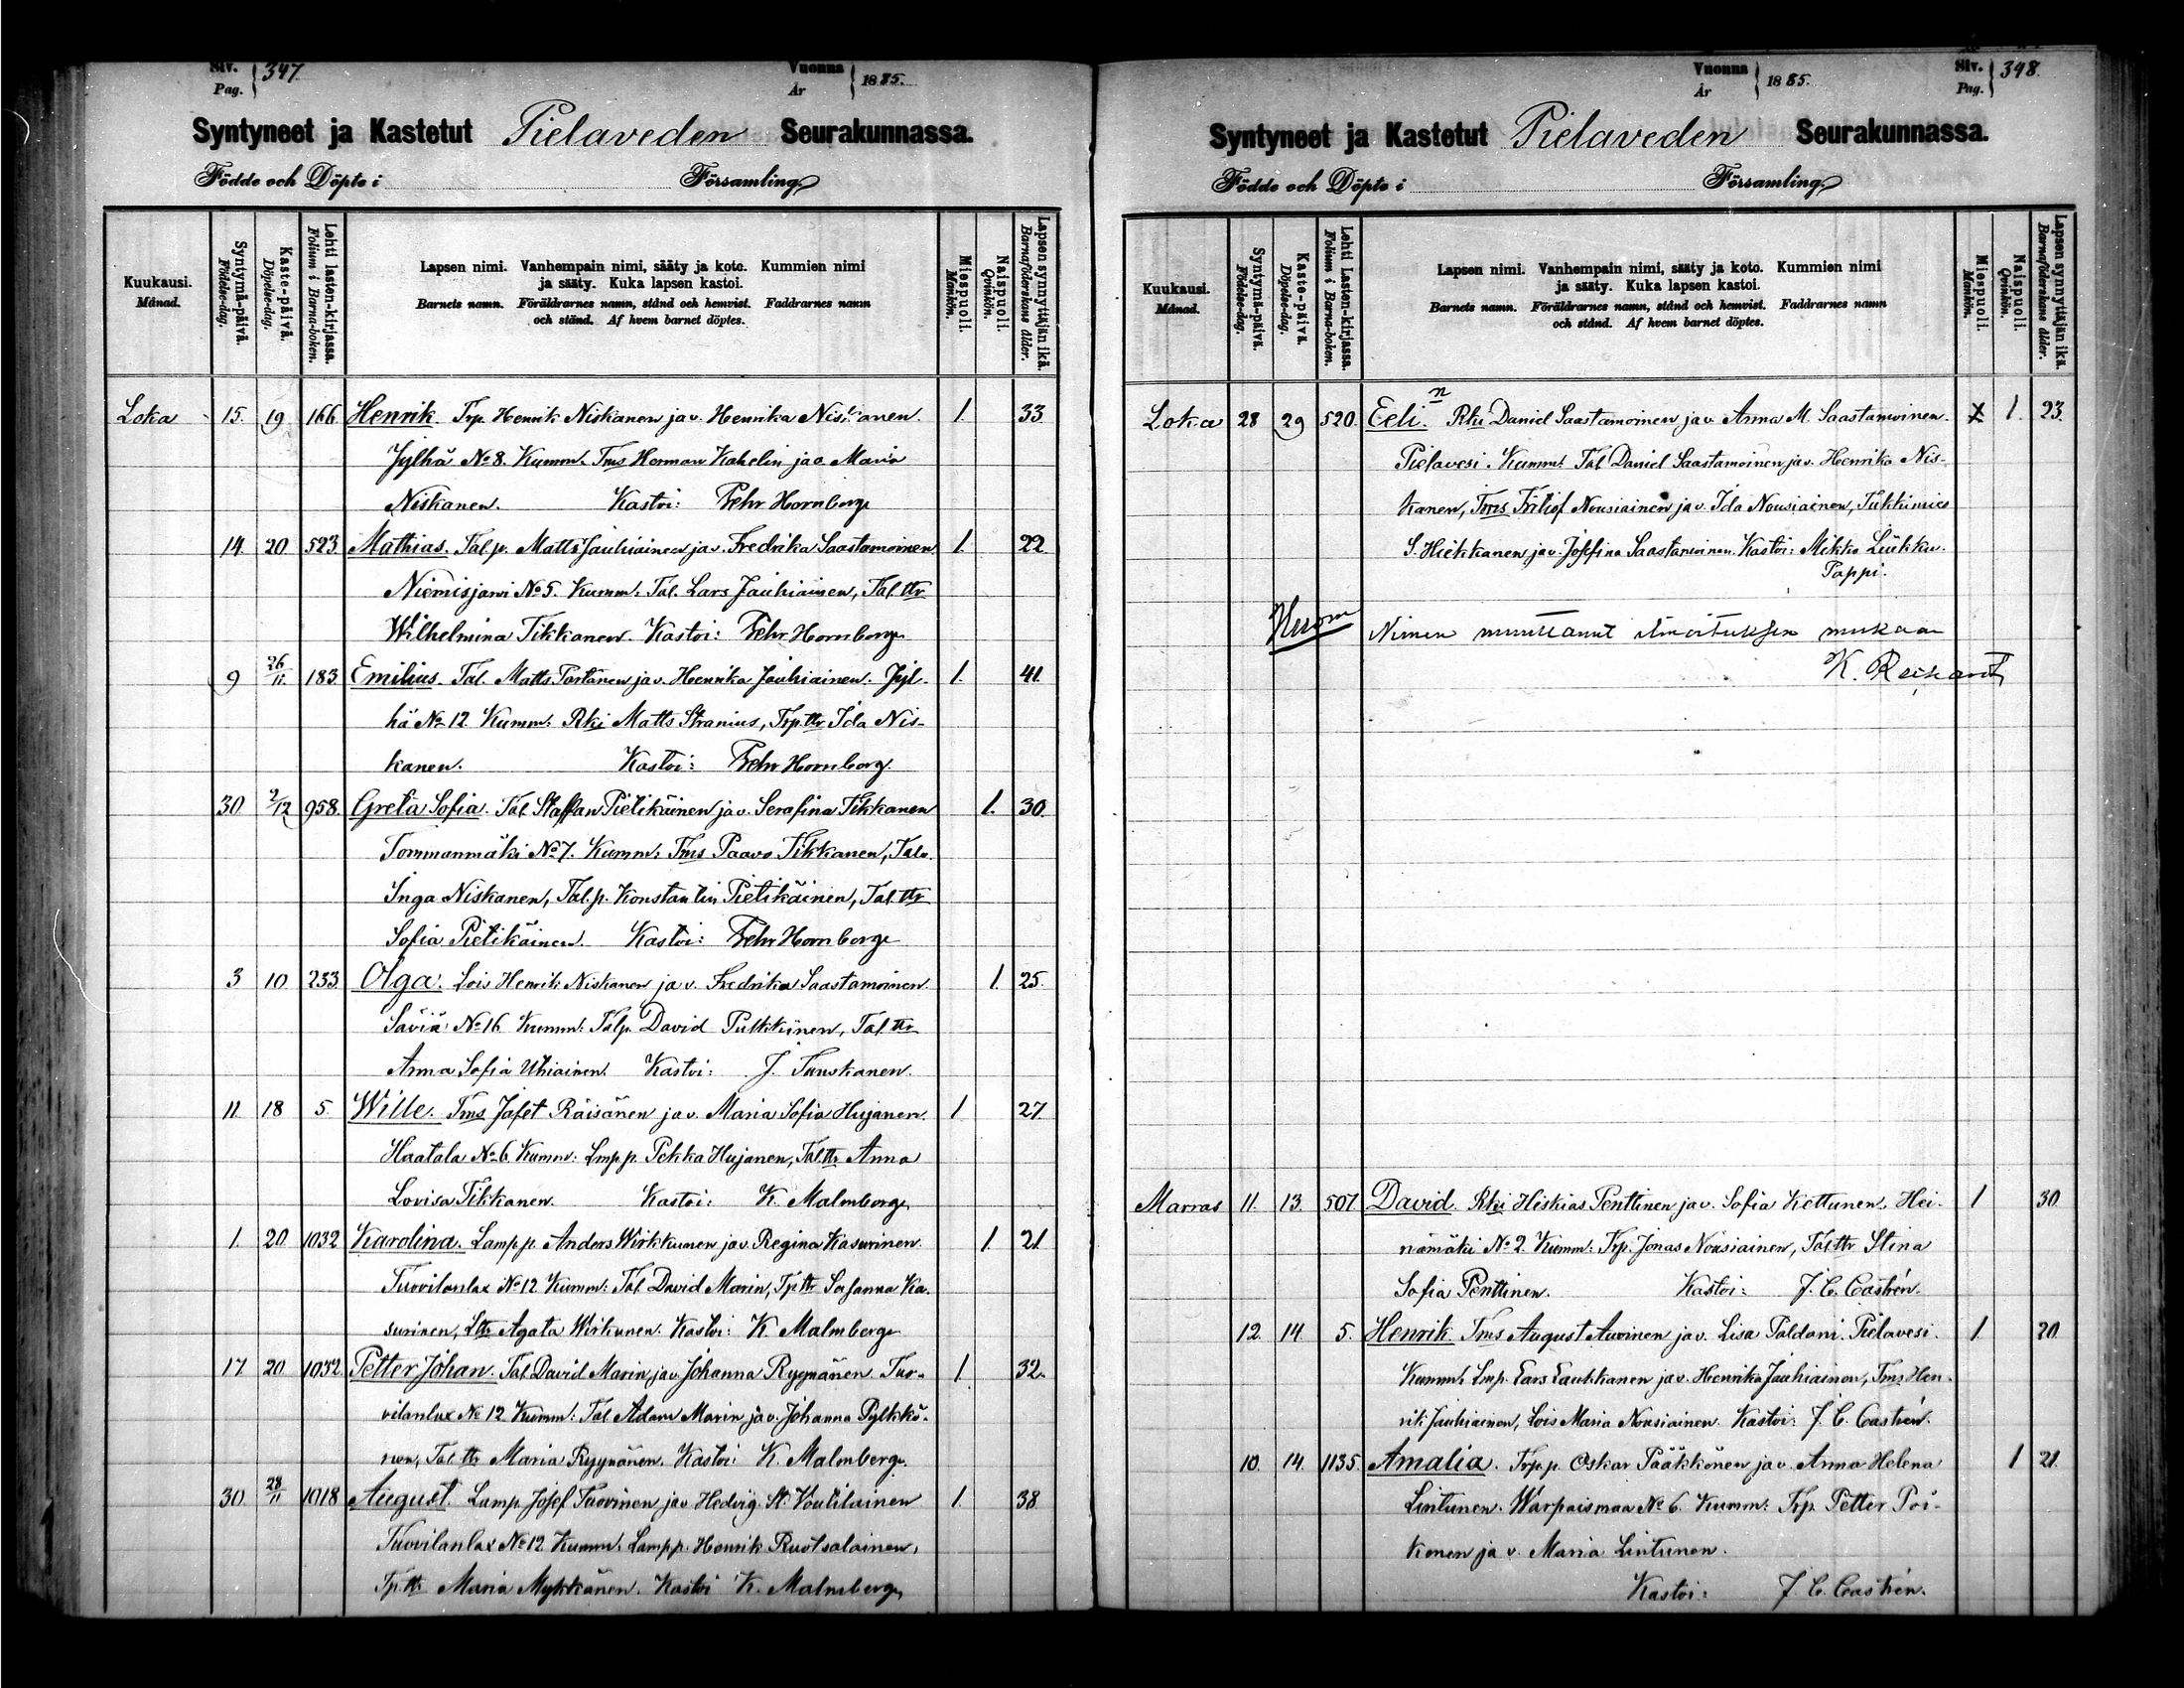 Siv. Pag. 347
Vuonna År 1885.
Syntyneet ja Kastetut Pielaveden Seurakunnassa.
Födde och Döpte i Församling.
Kuukausi. Månad.
Syntymä-päivä. Födelse-dag.
Kaste-päivä. Döpelse-dag.
Lehti lasten-kirjassa. Folium i Barna-boken.
Lapsen nimi. Vanhempain nimi, sääty ja koto. Kummien nimi
ja sääty. Kuka lapsen kastoi.
Barnets namn. Föräldrarnes namn, stånd och hemvist. Faddrarnes namn
och stånd. Af hvem barnet döptes.
Miespuoli. Mankön.
Naispuoli. Qvinkön.
Lapsen synnyttäjän ikä. Barnaföderskans ålder.
Loka 15. 19 166 Henrik. Trp. Henrik Niskanen ja v. Henrika Niskanen. 1. 33
Jylhä No 8. Kumm. Tms Herman Kahelin ja v. Maria
Niskanen. Kastoi: Fehr Hornborg
14. 20 523 Mathias. Tal. p. Matts Jauhiainen ja v. Fredrika Saastamoinen 1. 22
Niemisjarvi No 5. Kumm: Tal. Lars Jauhiainen, Tal. ttr
Wilhelmina Tikkanen. Kastoi: Fehr Hornborg
9 26/11. 183 Emilius. Tal. Matts Tortanen ja v. Henrika Jauhiainen. Jyl- 1. 41.
hä No 12 Kumm: Rki Matts Stranius, Trp. ttr Ida Nis-
kanen. Kastoi: Fehr Hornborg.
30. 2/12 958. Greta Sofia. Tal. Staffan Pietikäinen ja v. Serafina Tikkanen 1. 30.
Tommanmäki No 7. Kumm: Tms Paavo Tikkanen, Tal v.
Inga Niskanen, Tal. p. Konstantin Pietikäinen, Tal. ttr
Sofia Pietikäinen. Kastoi: Fehr Hornborg
3 10 233 Olga. Lois Henrik Niskanen ja v. Fredrika Saastamoinen. 1. 25.
Säviä No 16 Kumm: Talp. David Pulkkinen, Tal. ttr
Anna Sofia Uhiainen. Kastoi: J. Tanskanen.
11. 18 5. Wille. Tms Jafet Räisänen ja v. Maria Sofia Hujanen. 1 27.
Haatala No 6 Kumm: Lmp p. Pekka Hujanen, Tal. ttr Anna
Lovisa Tikkanen. Kastoi: K. Malmberg.
1. 20 1032 Karolina. Lamp p. Anders Wirkkunen ja v. Regina Kasurinen. 1. 21
Tuovilanlax No 12 Kumm: Tal. David Marin, Tp. ttr Susanna Ka-
surinen, Ltr Agata Wirkunen. Kastoi: K. Malmberg
17. 20. 1032. Petter Johan. Tal. David Marin ja v. Johanna Ryynänen. Tuo- 1. 32.
vilanlax No 12 Kumm: Tal. Adam Marin ja v. Johanna Pylkkö-
nen, Tal. ttr Maria Ryynänen. Kastoi: K. Malmberg.
30. 28/11 1018 August. Lamp. Josef Tuovinen ja v. Hedvig St. Voutilainen 1. 38
Tuovilanlax No 12 Kumm. Lamp p. Henrik Ruotsalainen,
Tp. ttr Maria Mykkänen. Kastoi K. Malmberg.
Vuonna År 1885.
Siv. Pag. 348.
Syntyneet ja Kastetut Pielaveden Seurakunnassa.
Födde och Döpte i Församling.
Kuukausi. Månad.
Syntymä-päivä. Födelse-dag.
Kaste-päivä. Döpelse-dag.
Lehti Lasten-kirjassa. Folium i Barna-boken.
Lapsen nimi. Vanhempain nimi, sääty ja koto. Kummien nimi
ja sääty. Kuka lapsen kastoi.
Barnets namn. Föräldrarnes namn, stånd och hemvist. Faddrarnes namn
och stånd. Af hvem barnet döptes.
Miespuoli. Mankön.
Naispuoli. Qvinkön.
Lapsen synnyttäjän ikä. Barnaföderskans ålder.
Loka 28 29 520. Eelin. Rki Daniel Saastamoinen ja v. Anna M. Saastamoinen. 1 23.
Pielavesi. Kumm: Tal Daniel Saastamoinen ja v. Henrika Nis-
kanen, Tms Fritiof Nousiainen ja v. Ida Nousiainen, Tukkimies
S. Hiekkanen ja v. Josefina Saastamoinen. Kastoi: Mikko Liikku.
Pappi.
Huom Nimen muuttanut ilmoituksen mukaan
K.
Marras 11. 13. 507 David. Rki Hiskias Penttinen ja v. Sofia Kettunen. Hei- 1 30
nämäki No 2. Kumm: Trp. Jonas Nousiainen, Tal. ttr Stina
Sofia Penttinen. Kastoi: J. C. Castrén.
12. 14. 5. Henrik. Tms August Auvinen ja v. Lisa Paldani. Pielavesi. 1. 20.
Kumm. Lmp. Lars Laukkanen ja v. Henrika Jauhiainen, Tms Hen-
rik Jauhiainen, Lois Maria Nousiainen. Kastoi: J. C. Castrén.
10. 14. 1135. Amalia. Trp. p. Oskar Pääkkönen ja v. Anna Helena 1 21.
Lintunen. Warpaismaa No 6. Kumm: Trp. Petter Poi-
konen ja v. Maria Lintunen.
Kastoi: J. C. Castrén.